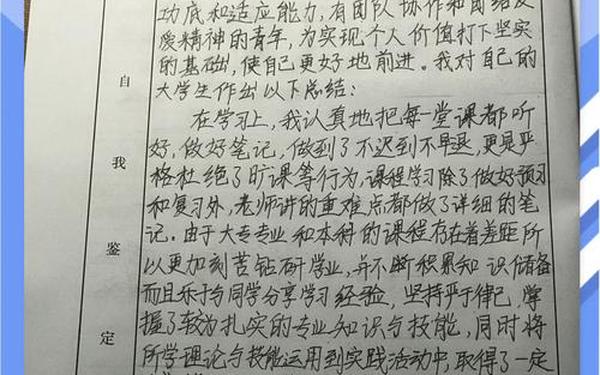 功底和适应能力,有团队协作和团结友
爱精神的青年,为实现个人价值打下坚实
的基础,使自己更好地前进。我对自己的
大学生作出以下总结:
在学习上,我认真地把每一堂课都听
好,做好笔记,做到了不迟到不早退,更是严
格杜绝了旷课等行为,课程学习除了做好预习
和复习外,老师讲的重难点都做了详细的笔
记。由于大专专业和本科的课程存在着差距所
以更加刻苦钻研学业,并不断积累知识储备
而且乐于与同学分享学习经验,坚持严于律己,掌
握了较为扎实的专业知识与技能,同时将
所学理论与技能运用到实践活动中,取得了一定
自
我
鉴
定